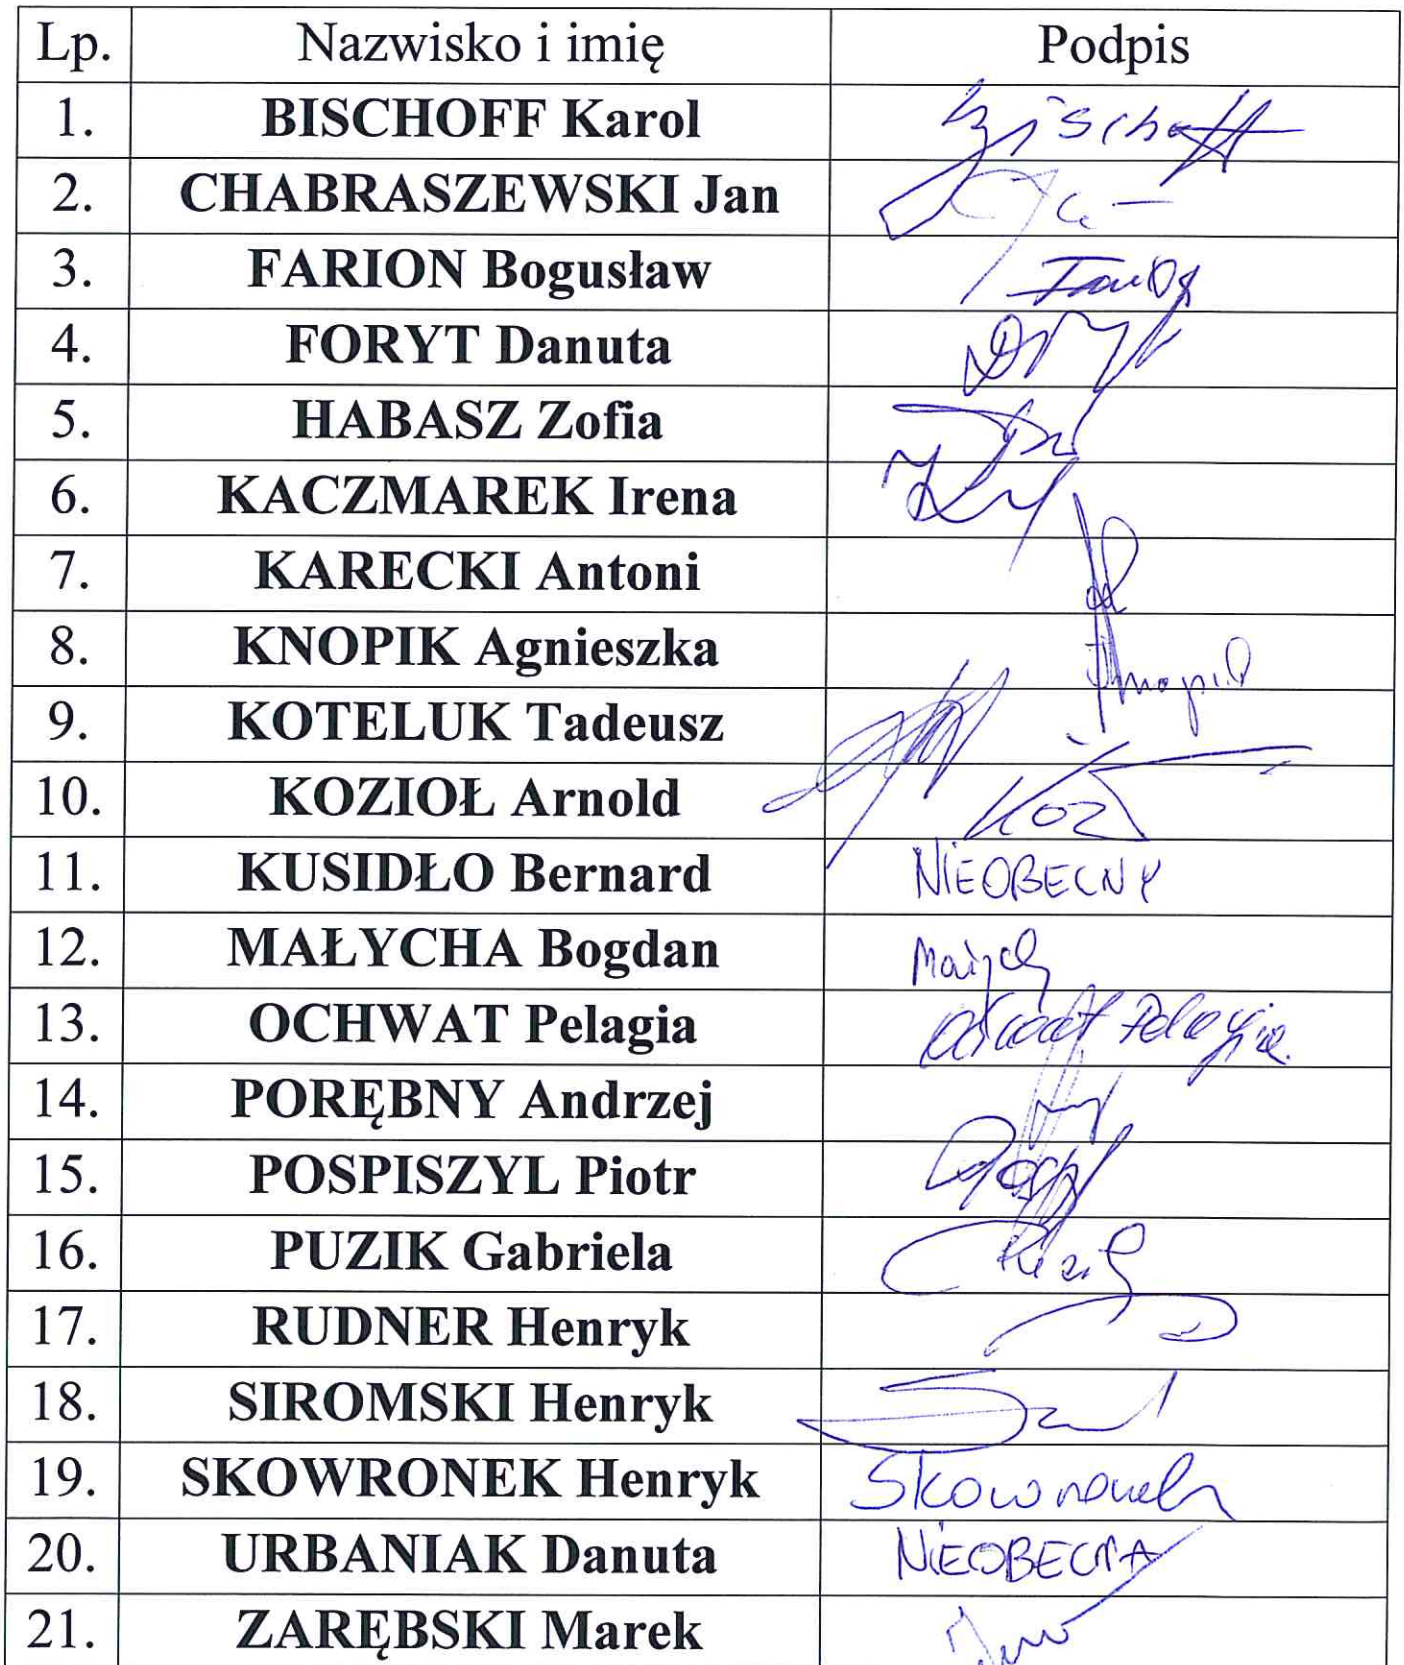 Lp. Nazwisko i imię Podpis
1. BISCHOFF Karol Bischoff
2. CHABRASZEWSKI Jan
3. FARION Bogusław
4. FORYT Danuta
5. HABASZ Zofia
6. KACZMAREK Irena
7. KARECKI Antoni
8. KNOPIK Agnieszka
9. KOTELUK Tadeusz
10. KOZIOŁ Arnold Koz
11. KUSIDŁO Bernard NIEOBECNY
12. MAŁYCHA Bogdan
13. OCHWAT Pelagia Ochwat Pelagia
14. PORĘBNY Andrzej
15. POSPISZYL Piotr
16. PUZIK Gabriela
17. RUDNER Henryk
18. SIROMSKI Henryk
19. SKOWRONEK Henryk Skowronek
20. URBANIAK Danuta NIEOBECNA
21. ZARĘBSKI Marek